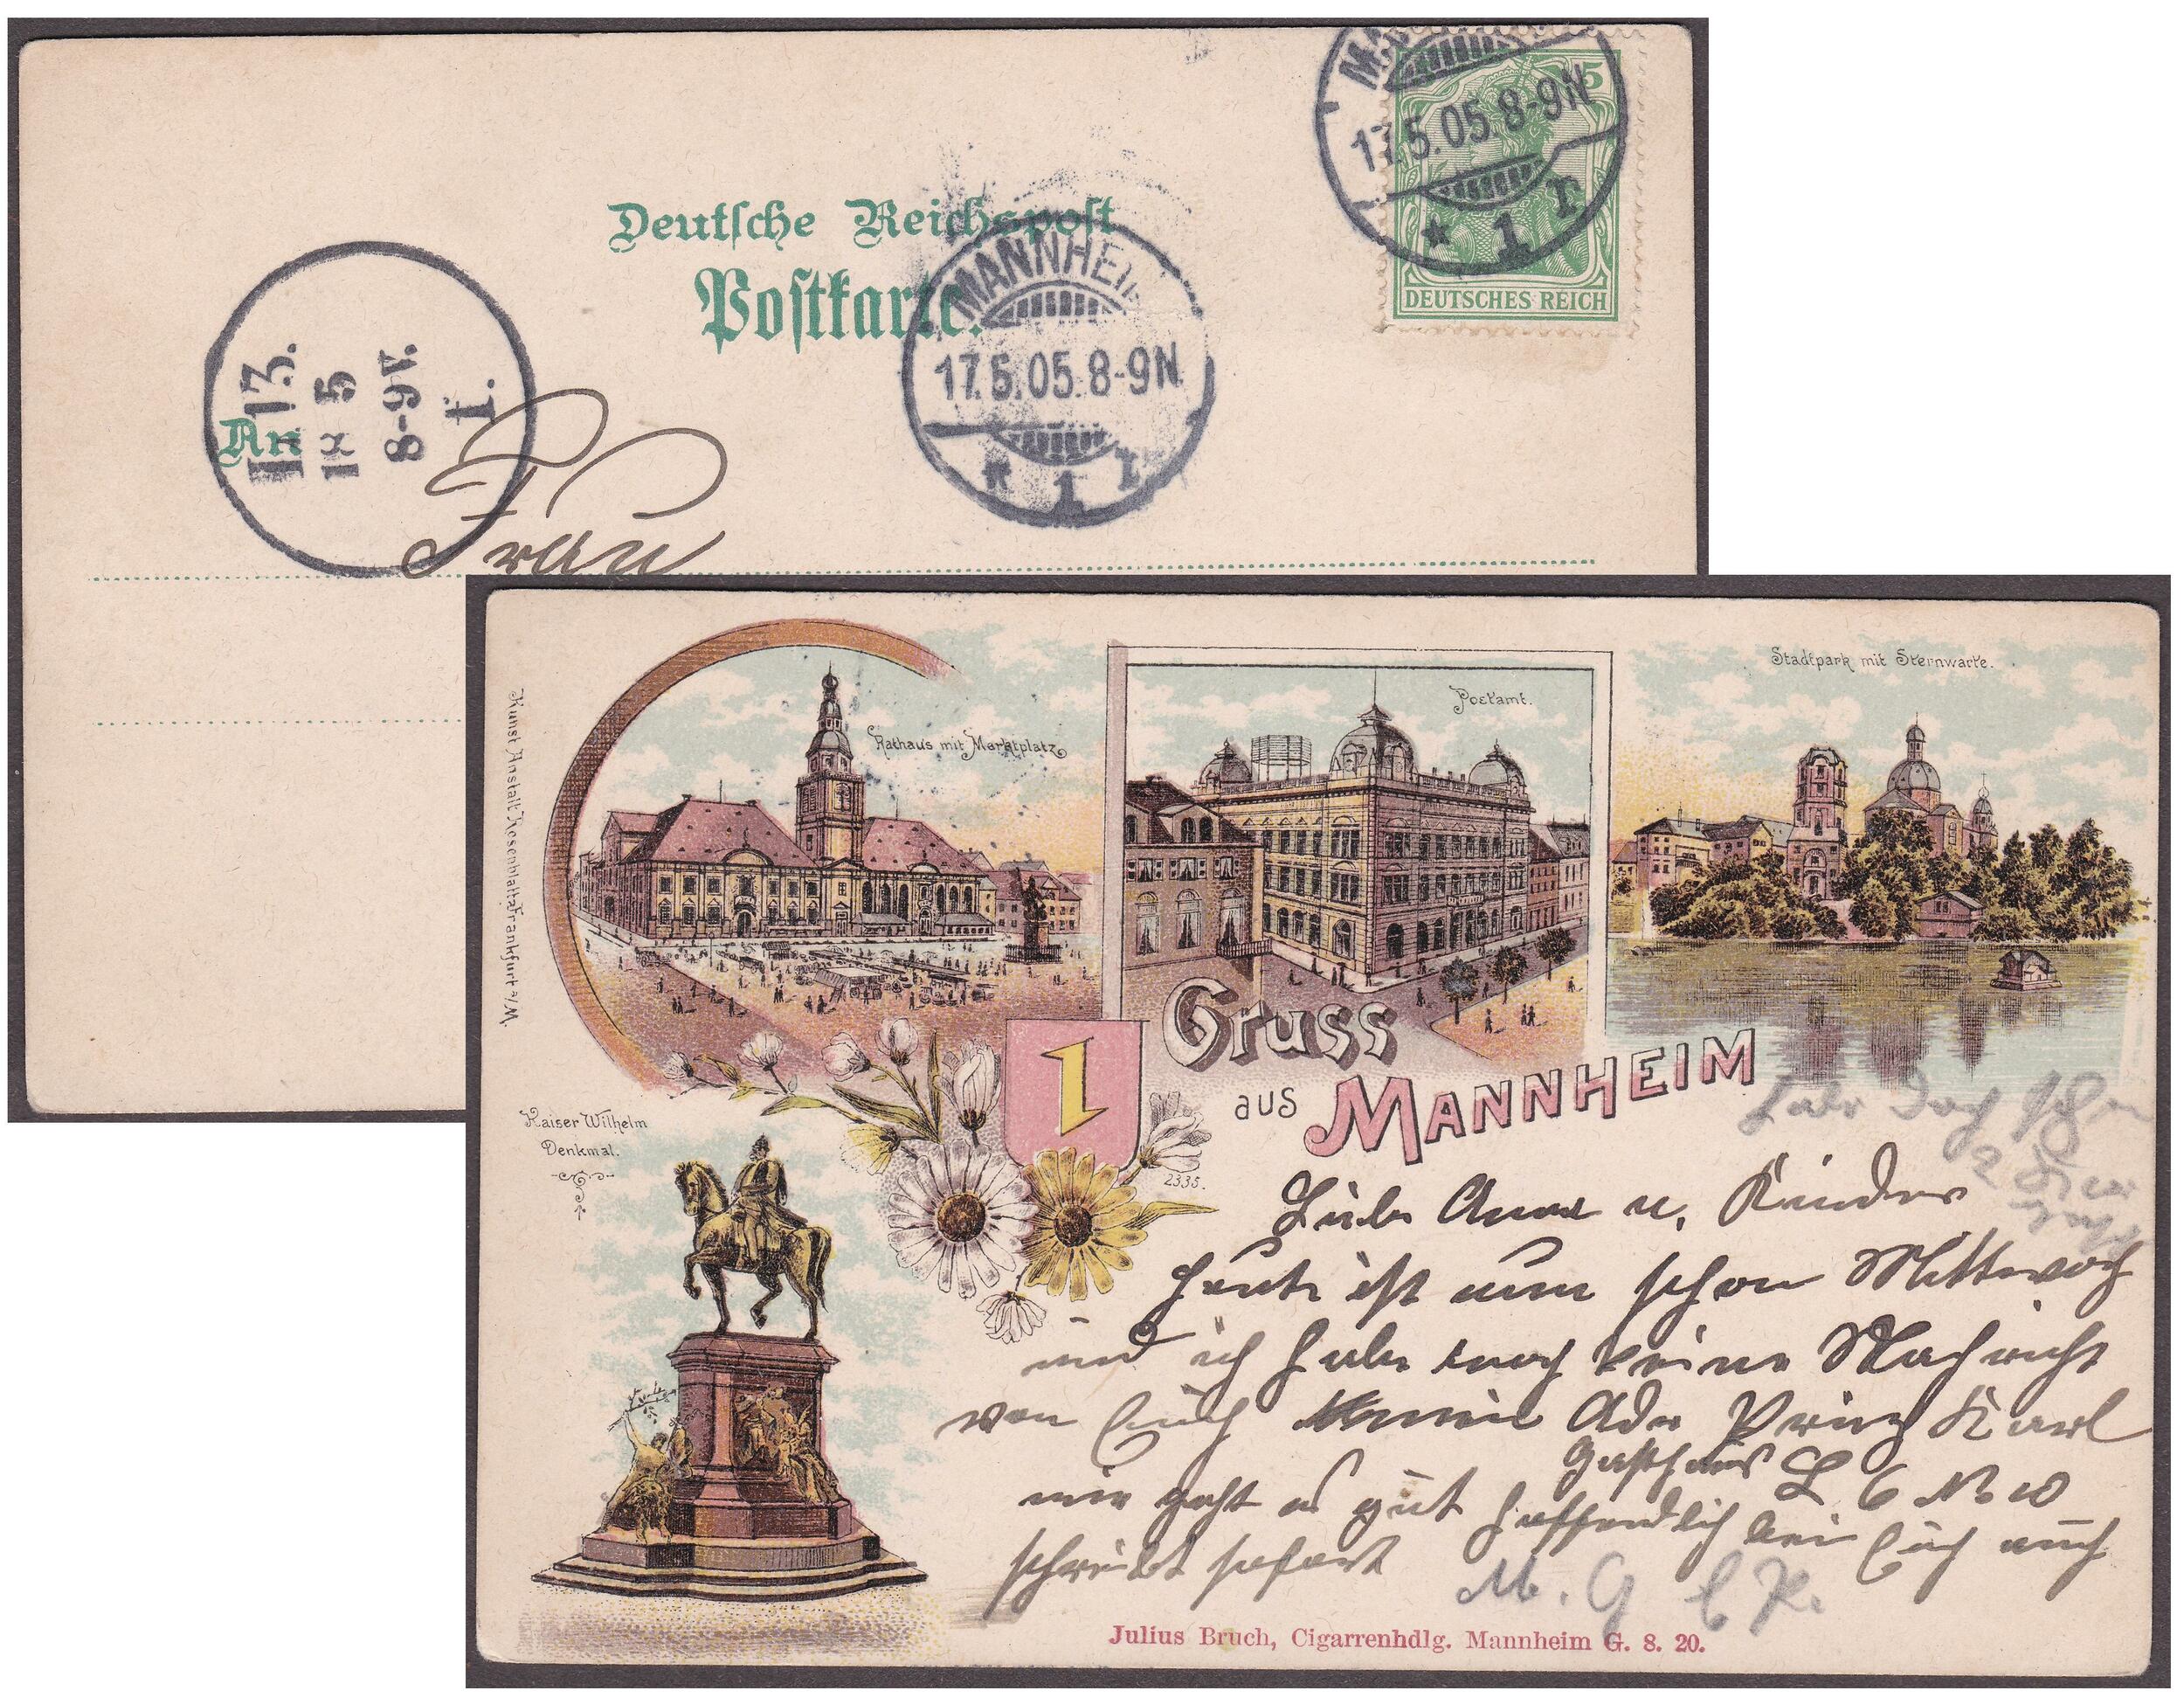 17.5.05.8-9N
* 1 r
5
DEUTSCHES REICH
Deutsche Reichspost
Postkarte.
MANNHEIM
17.5.05.8-9N
* 1 r
13.
18 5
8-9V.
1.
An
Frau
Kunst Anstalt Rosenblatt Frankfurt a/M.
Rathaus mit Marktplatz
Postamt.
Stadtpark mit Sternwarte.
Gruss
aus MANNHEIM
Kaiser Wilhelm
Denkmal.
2335.
Habe doch schon
2
Liebe Anna u. Kinder
heute ist nun schon Mittwoch
und ich habe noch keine Nachricht
von Euch meine Adr Prinz Karl
Gasthaus L 6 No 10
mir geht es gut hoffendlich bei Euch auch
schreibt sofort
M. G
Julius Bruch, Cigarrenhdlg. Mannheim G. 8. 20.